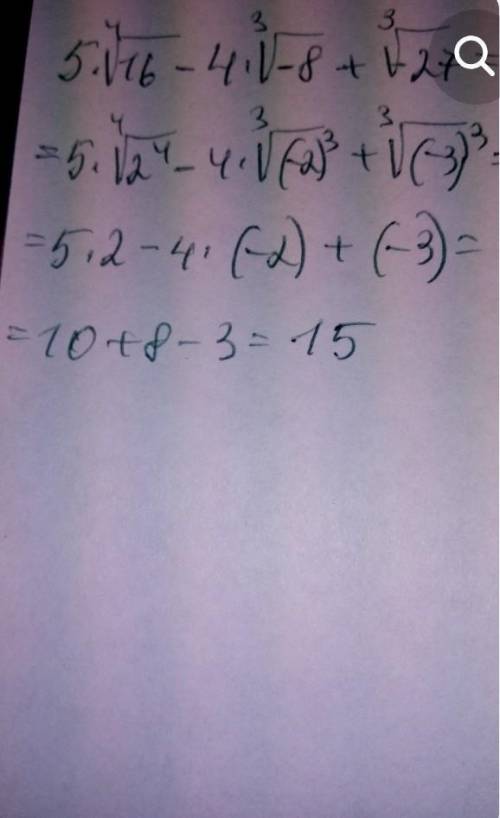 5·∜16 − 4·∛−8 + ∛−27 =
= 5·∜2⁴ − 4·∛(−2)³ + ∛(−3)³ =
= 5·2 − 4·(−2) + (−3) =
= 10 + 8 − 3 = 15